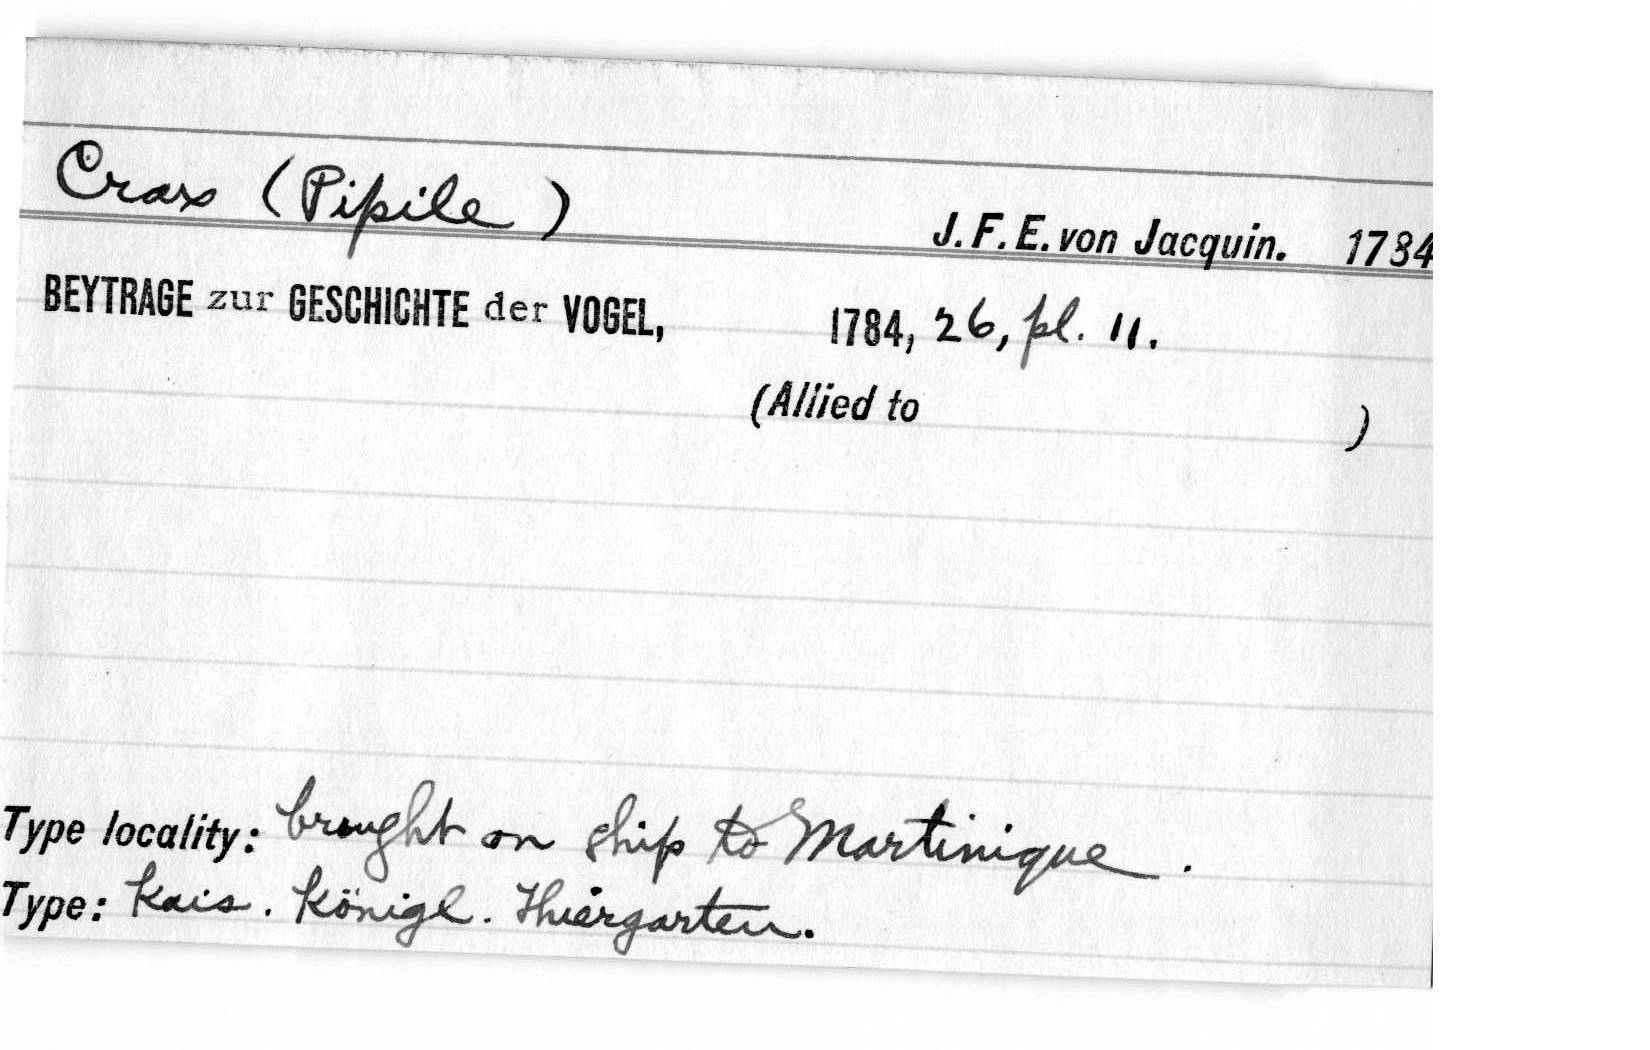 Crax (Pipile) J. F. E. von Jacquin. 1784
BEYTRAGE zur GESCHICHTE der VOGEL, 1784, 26, pl. 11.
(Allied to )
Type locality: brought on ship to Martinique.
Type: Kais. Königl. Thiergarten.